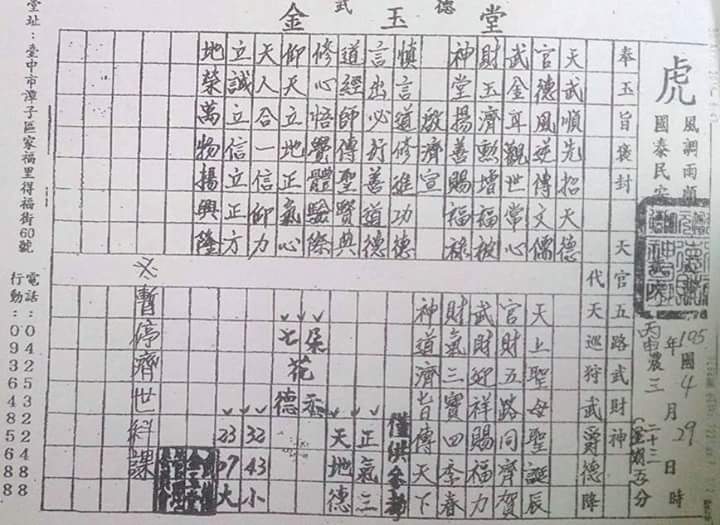 金玉堂
虎
風調雨順
國泰民安
105年國4月29日時
丙申農三月二十三(星期五)分
奉玉旨褒封 天官五路武財神
代天巡狩武爵德降
天武順先招天德
官德風逆傳文儒
武金耳觀世常心
財玉濟勳增福被
神堂揚善賜福祿
啟濟宣
慎言道修進功德
言出必行善道德
道經師傳聖賢典
修心悟覺體驗際
仰天立地正氣心
天人合一信仰力
立誠立信立正方
地榮萬物揚興隆
天上聖母聖誕辰
官財五路同齊賀
武財迎祥賜福力
財氣三寶四季春
神道濟皆傳天下
僅供參考
正氣三
天地德
朵
七花香德
32 43 小
23 07 大
※暫停濟世科課
堂址:臺中市潭子區家福里得福街60號
電話:0425322488
行動:0936485688